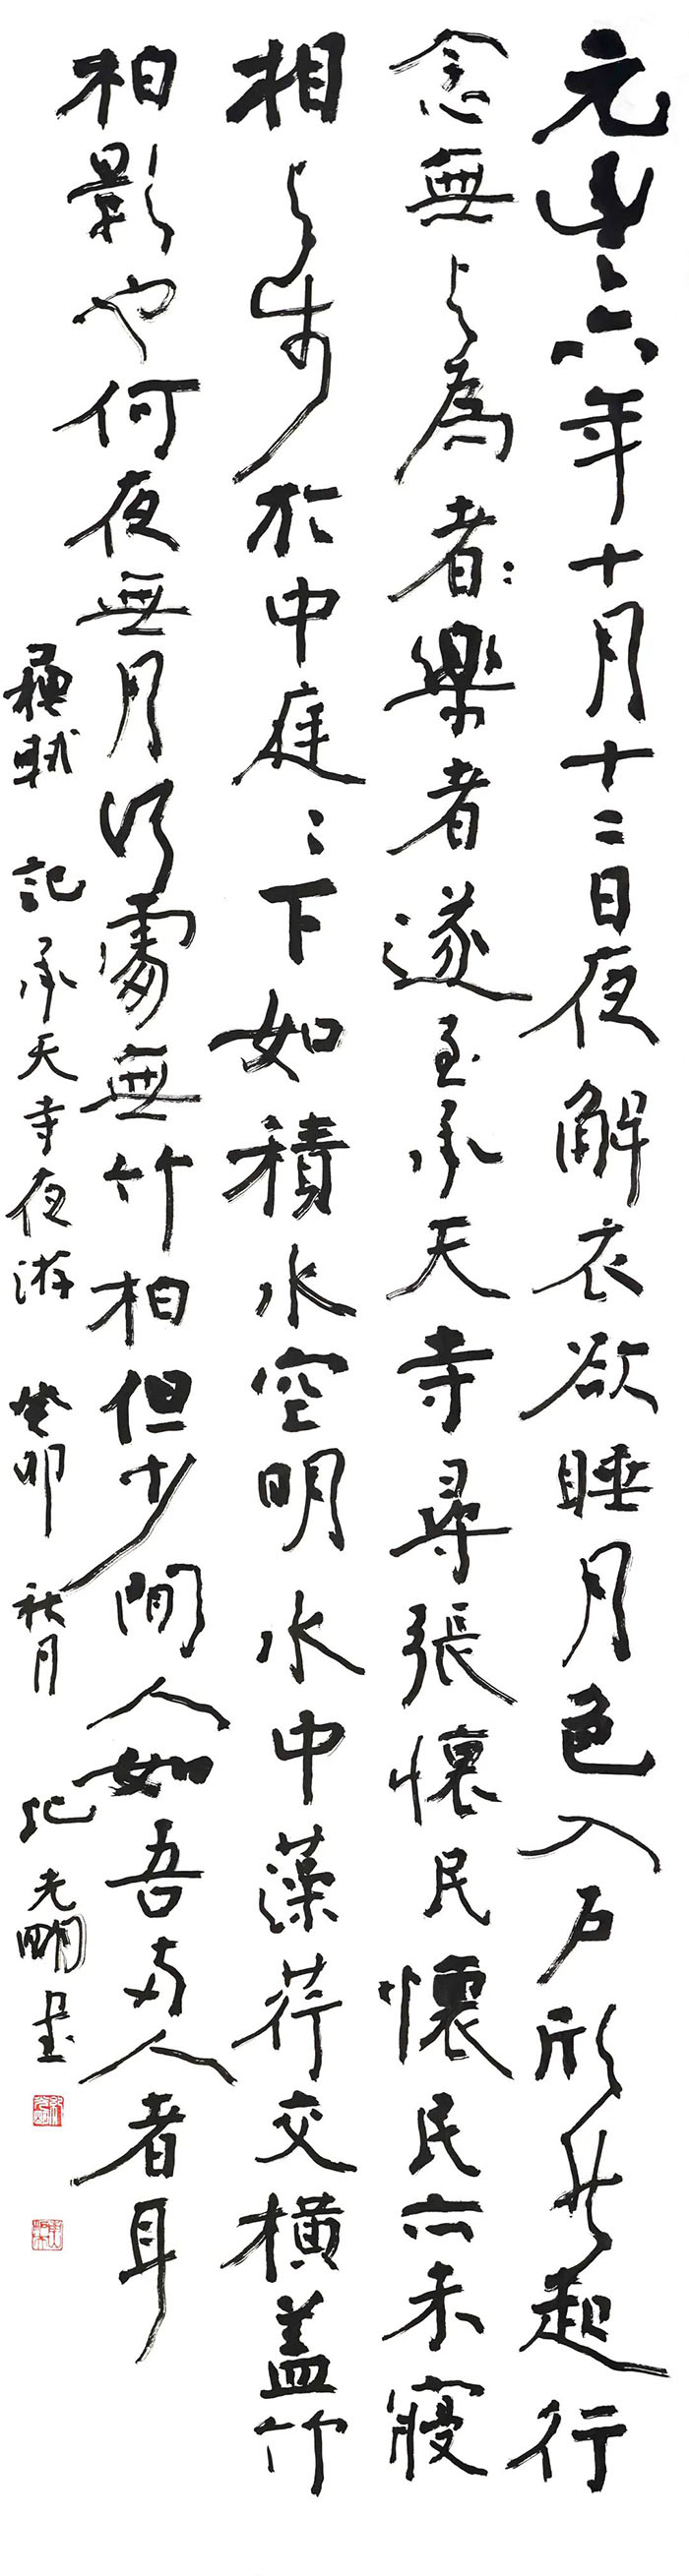 元豐六年十月十二日夜解衣欲睡月色入户欣然起行
念無与為者〻樂者遂至承天寺尋張懷民懷民亦未寢
相与步於中庭〻下如積水空明水中藻荇交橫蓋竹
柏影也何夜無月何處無竹柏但少閒人如吾兩人者耳
蘇軾 記承天寺夜游 癸卯 秋月 紀光明書